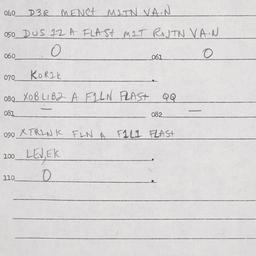 060 D3R MENCt M2TN VA.N
050 DUS 12 A FLASt M2T RAJTN VA.N
060 O 061 O
070 KOR2K
080 XOBLIB2 A F2LN FLASt QQ
081 — 082 —
090 XTRINK FLN A F1L1 FLASt
100 LEV,EK
110 O